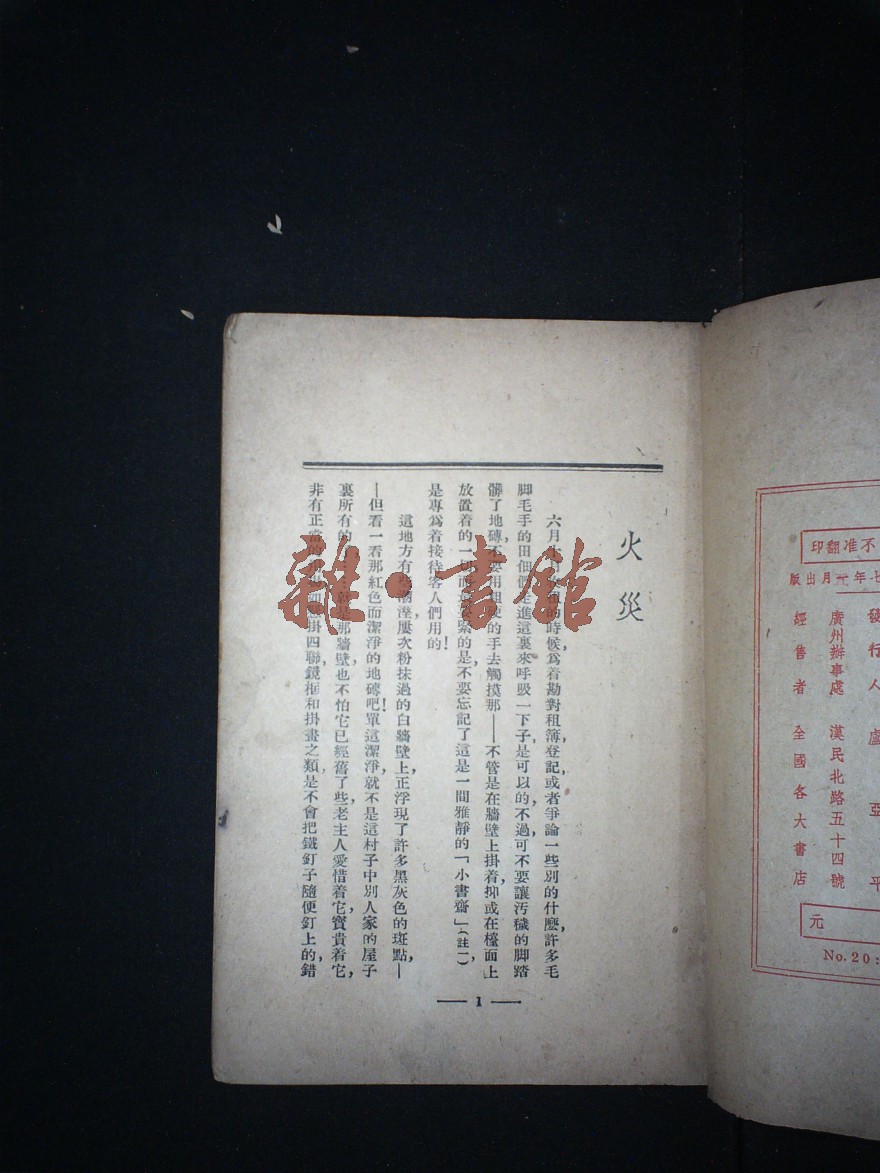 不准翻印
七年十一月出版
發行人 盧亞平
廣州辦事處 漢民北路五十四號
經售者 全國各大書店
元
No.20:
火災
六月 的時候,爲着勘對租簿登記或者爭論一些別的什麽,許多毛
脚毛手的田佃們走進這裏來呼吸一下子是可以的,不過可不要讓汚穢的脚踏
髒了地磚,不要用粗皮的手去觸摸那——不管是在牆壁上掛着,抑或在檯面上
放置着的一切。而最要緊的是不要忘記了這是一間雅靜的「小書齋」(註一),
是專爲着接待客人們用的!
這地方有些潮溼,屢次粉抹過的白牆壁上,正浮現了許多黑灰色的斑點,—
—但看一看那紅色而潔淨的地磚吧!單這潔淨,就不是這村子中別人家的屋子
裏所有的 就是那牆壁也不怕它已經舊了些,老主人愛惜着它,寶貴着它,
非有正當的 掛四聯,鏡框和掛畫之類,是不會把鐵釘子隨便釘上的,錯
1
雜·書館